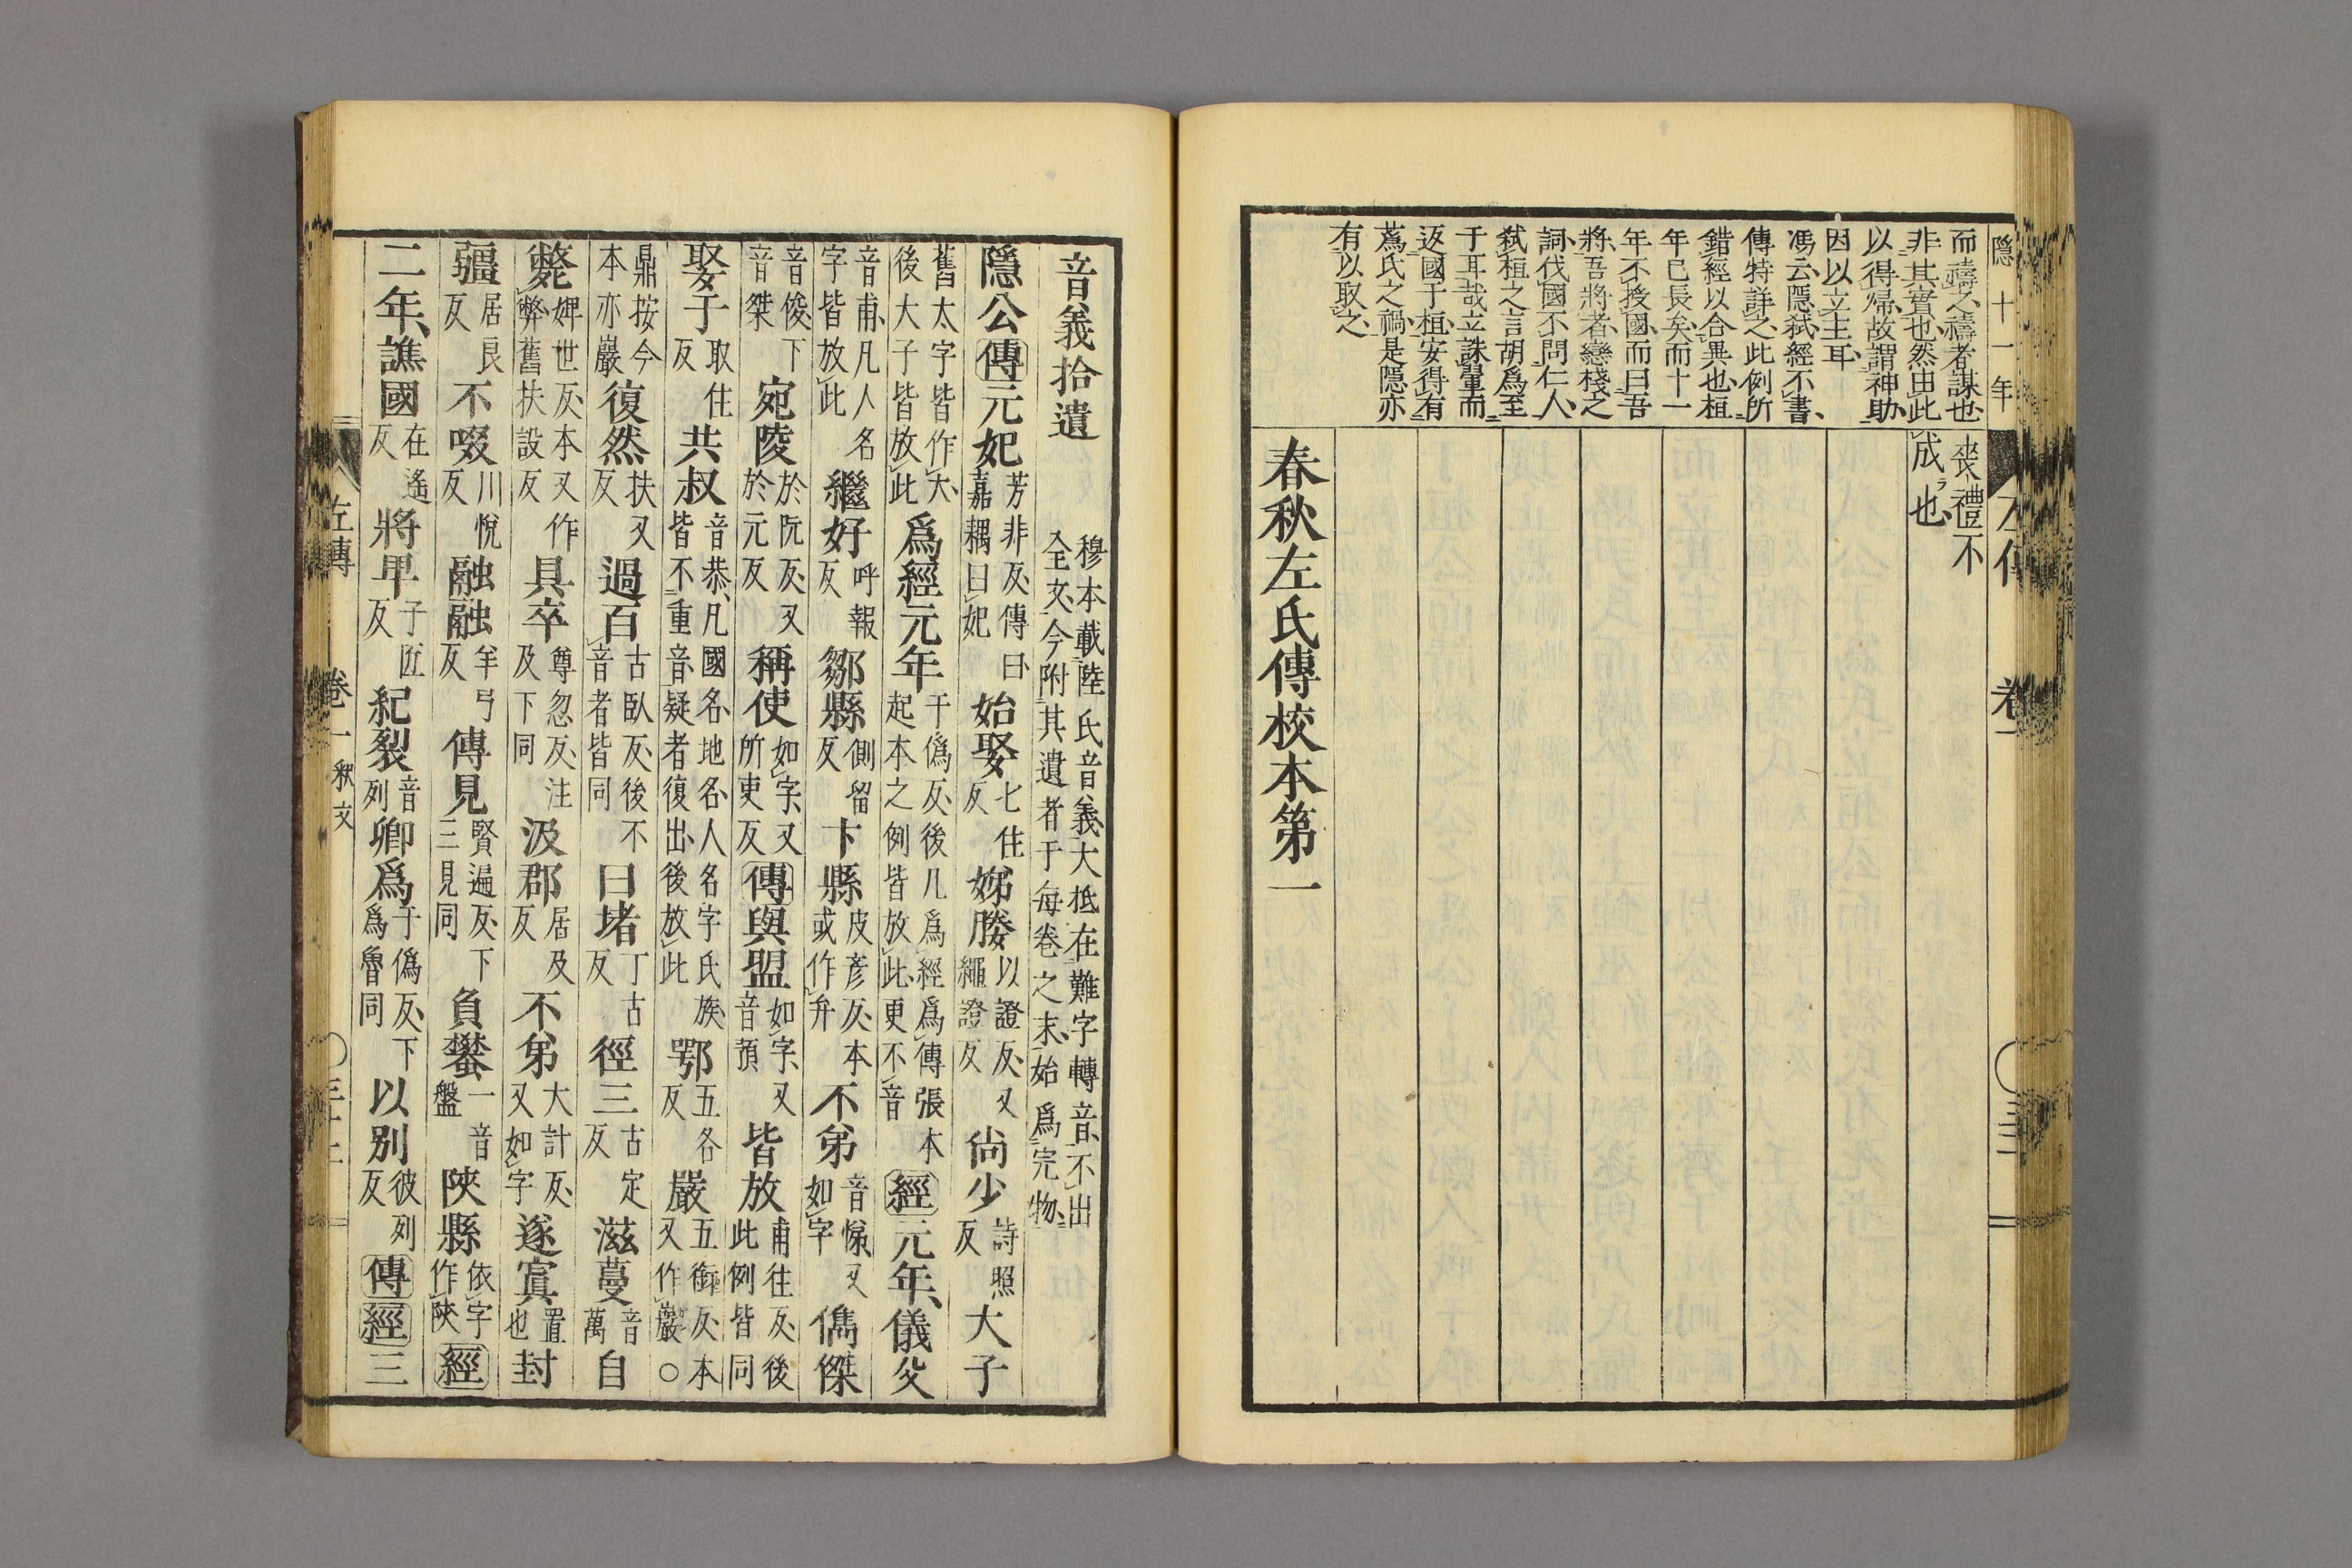 隱十一年
而禱之禱者謀也
非其實也然由此
以得歸故謂神助
因以立主耳
馮云隱弒經不書
傳特詳之此例所
錯經以合異也桓
年已長矣而十一
年不授國而曰吾
將吾將者戀棧之
詞伐國不問仁人
弒桓之言胡爲至
于耳哉立誅翬而
返國于桓安得有
蔿氏之禍是隱亦
有以取之
喪禮不
成也
春秋左氏傳校本第一
音義拾遺 穆本載陸氏音義大抵在難字轉音不出全文今附其遺者于每卷之末始爲完物
隱公傳元妃 芳非反傳曰嘉耦曰妃 始娶 七住反 娣媵 以證反又繩證反 尚少 詩照反 大子
舊太字皆作大後大子皆放此 爲經元年 于僞反後凡爲經爲傳張本起本之例皆放此更不音 經元年儀父
音甫凡人名字皆放此 繼好 呼報反 鄒縣 側留反 卞縣 皮彥反本或作弁 不弟 音悌又如字 儁傑
音俊下音桀 宛陵 於阮反又於元反 稱使 如字又所吏反 傳與盟 如字又音預 皆放 甫往反後此例皆同
娶于 取住反 共叔 音恭凡國名地名人名字氏族皆不重音疑者復出後放此 鄂 五各反 嚴 五銜反本又作巖○
鼎按今本亦巖 復然 扶又反 過百 古臥反後不音者皆同 曰堵 丁古反 徑三 古定反 滋蔓 音萬 自
斃 婢世反本又作弊舊扶設反 具卒 尊忽反注及下同 汲郡 居及反 不弟 大計反又如字 遂寘 置也 封
疆 居良反 不啜 川悅反 融融 羊弓反 傳見 賢遍反下三見同 負蠜 一音盤 陝縣 依字作陝 經
二年譙國 在遙反 將早 子匠反 紀裂 音列 卿爲 于僞反下爲魯同 以別 彼列反 傳經三
左傳 卷一 釈文